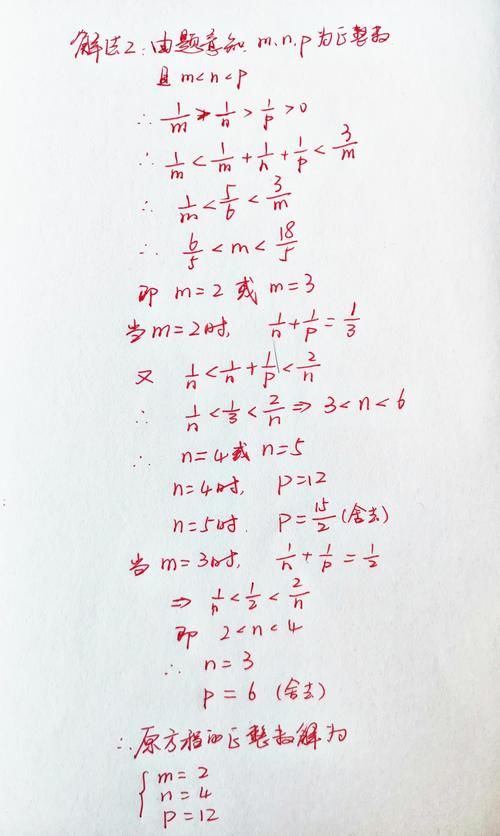 解法2:由题意知 m、n、p为正整数
且 m<n<p
∴ 1/m > 1/n > 1/p > 0
∴ 1/m < 1/m + 1/n + 1/p < 3/m
∴ 1/m < 5/6 < 3/m
∴ 6/5 < m < 18/5
即 m=2 或 m=3
当m=2时, 1/n + 1/p = 1/3
又 1/n < 1/n + 1/p < 2/n
∴ 1/n < 1/3 < 2/n ⇒ 3<n<6
∴ n=4或 n=5
n=4时, p=12
n=5时. p=15/2 (舍去)
当 m=3时, 1/n + 1/p = 1/2
⇒ 1/n < 1/2 < 2/n
即 2<n<4
∴ n=3
p=6 (舍去)
∴原方程的正整数解为
{ m=2
n=4
p=12